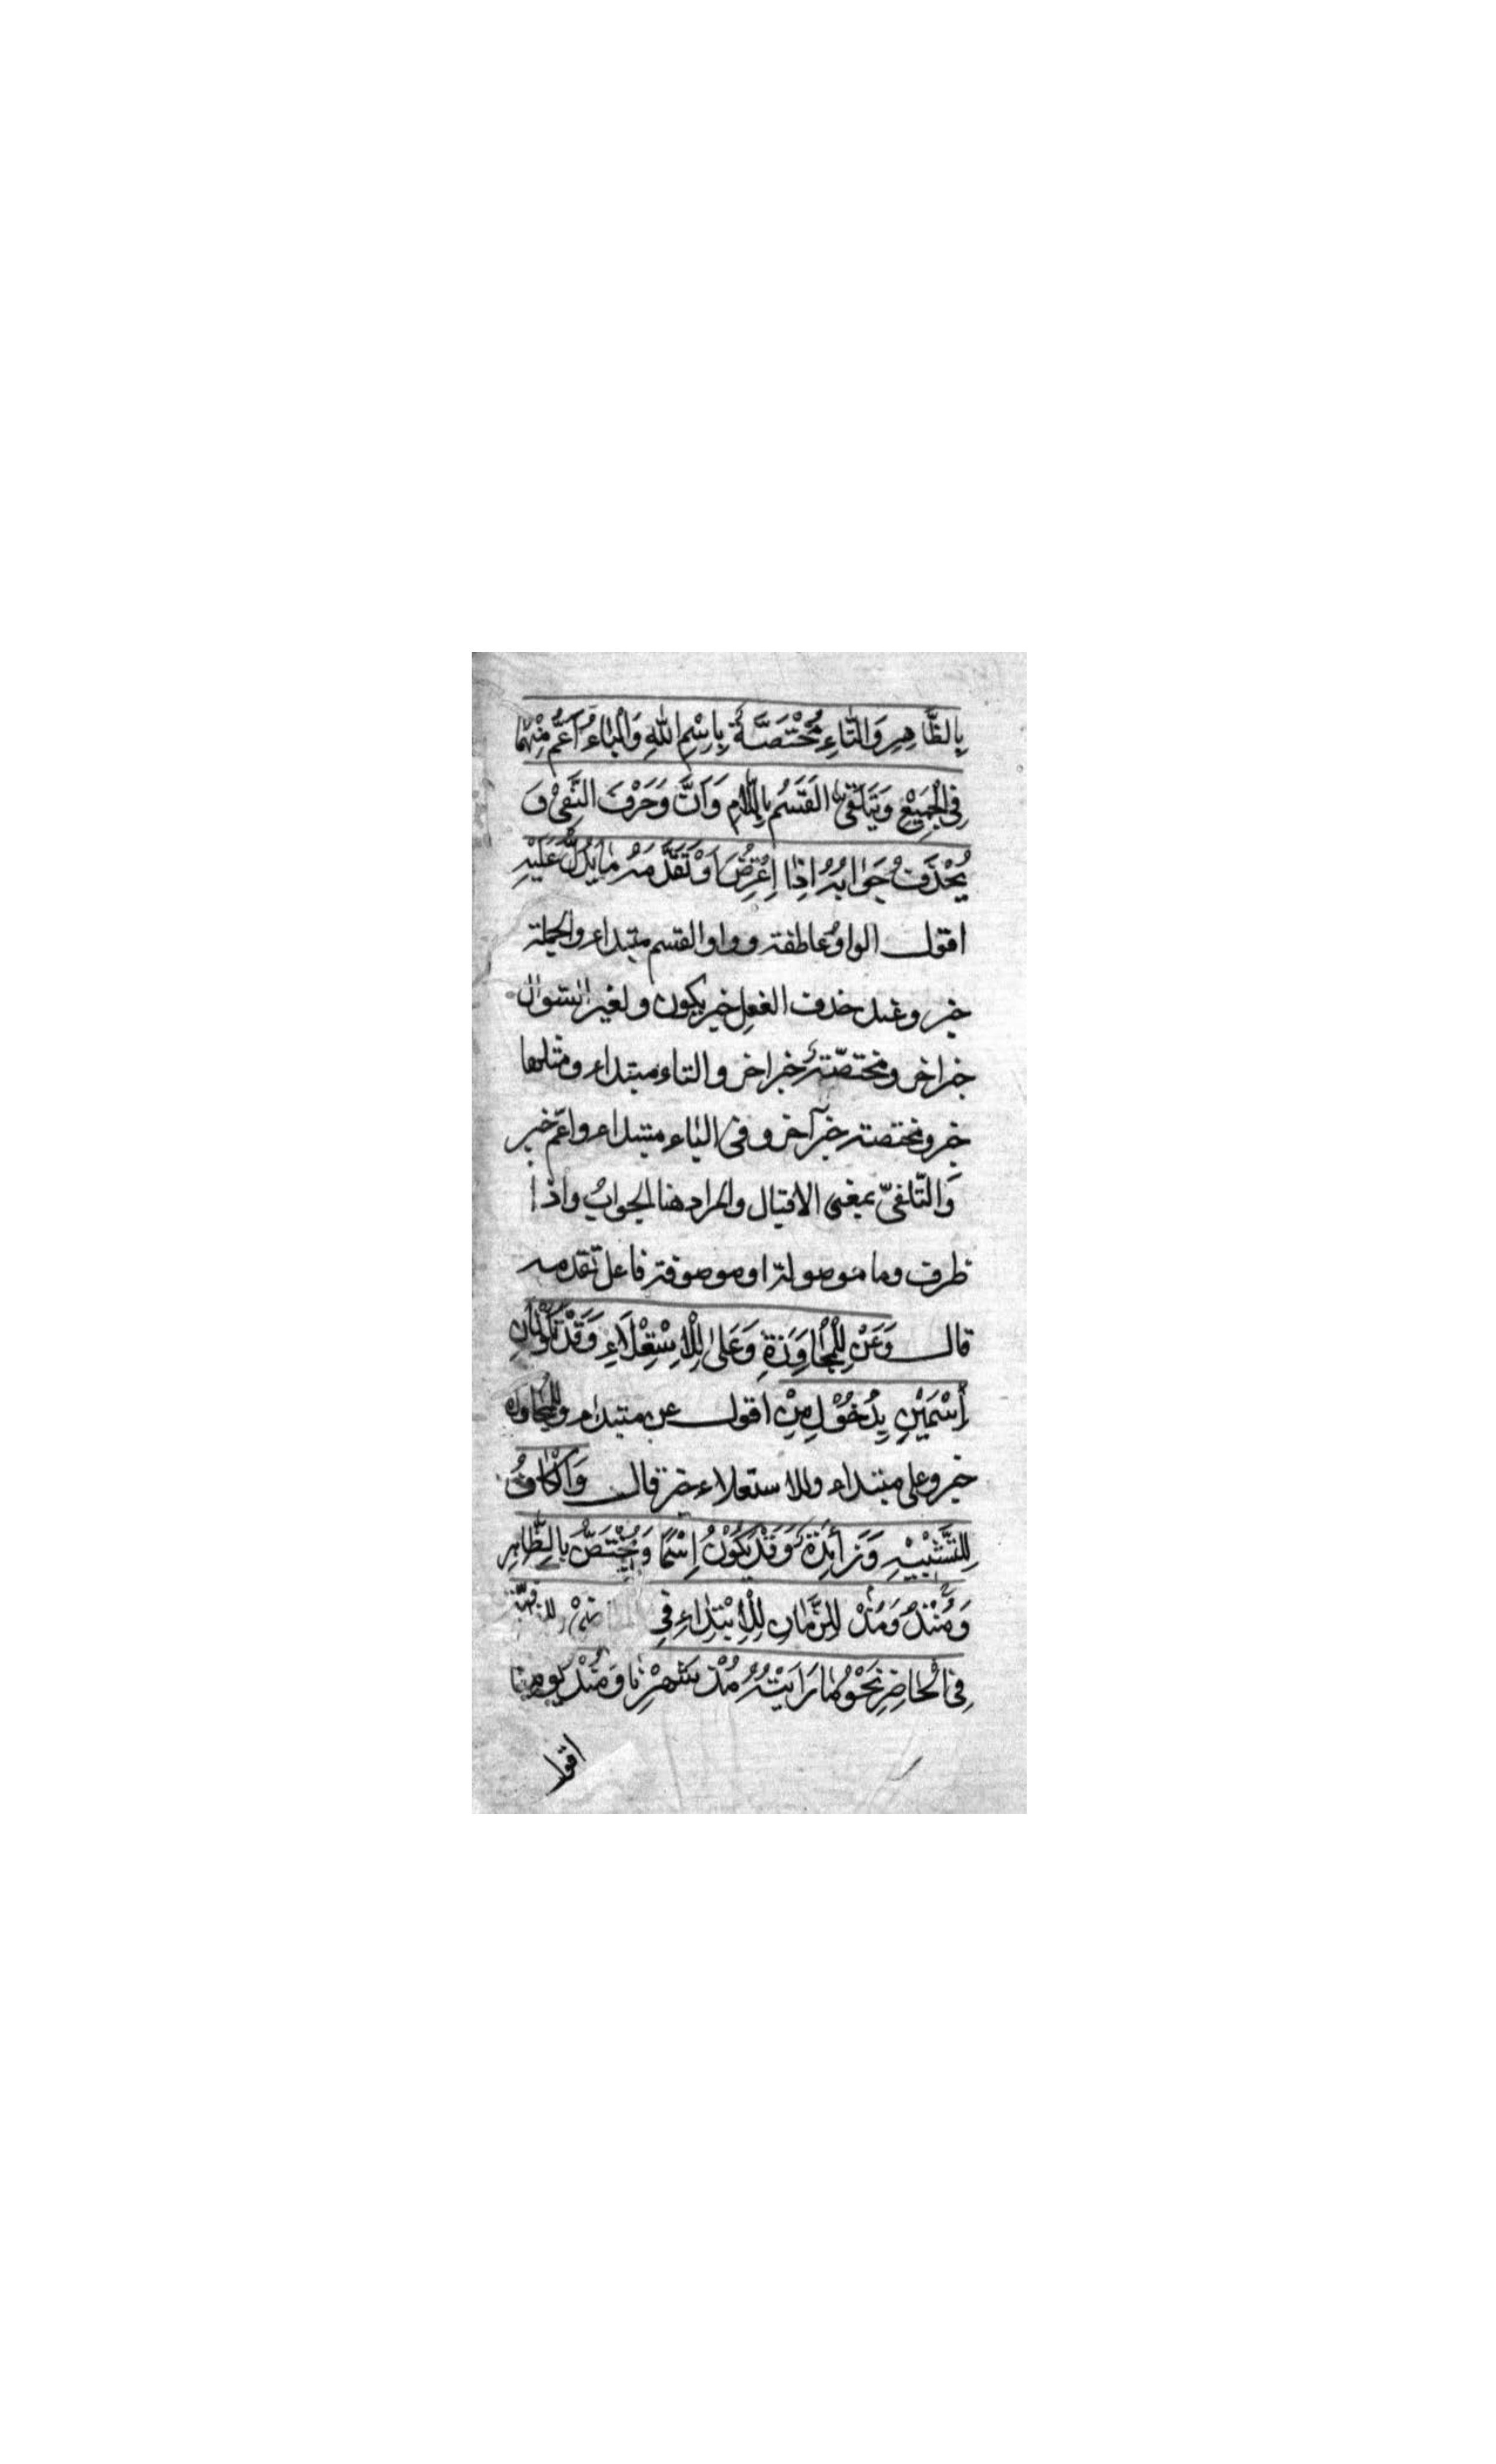 بِالظَّاهِرِ وَالتَّاءِ مُخْتَصَّةٌ بِاسْمِ اللهِ وَالْبَاءُ اَعَمُّ مِنْهُمَا
فِي الْجَمِيْعِ وَيَتَلَقّٰى الْقَسَمُ بِاللَّامِ وَاَنَّ وَحَرْفَ النَّفِىْ وَ
يُحْذَفُ جَوَابُهُ اِذَا اِعْتَرَضَ اَوْ تَقَدَّمَهُ مَا يَدُلُّ عَلَيْهِ
اقول الواو عاطفة وواو القسم مبتداء والجملة
خبر وعند حذف الفعل خبر يكون ولغير السّوال
خبر اخر ومختصّة خبر اخر والتاء مبتداء ومثلها
خبر ومختصة خبر آخر وفى الباء مبتداء واعم خبر
وَالتّلقىّ بمعنى الاقبال والمراد هنا الجوابُ واذا
ظرف وما موصولة او موصوفة فاعل تقدمه
قال وَعَنْ لِلْمُجَاوَزَةِ وَعَلٰى لِلْاِسْتِعْلَاءِ وَقَدْ تَكُوْنَانِ
اِسْمَيْنِ بِدُخُوْلِ مِنْ اقول عن مبتداء وللمجاوزة
خبر وعلى مبتداء وللاستعلاء خبر قال وَالْكَافُ
لِلتَّشْبِيْهِ وَزَائِدَةٌ وَقَدْ يَكُوْنُ اِسْمًا وَيُخْتَصُّ بِالظَّاهِرِ
وَمُنْذُ وَمُذْ لِلزَّمَانِ لِلْاِبْتِدَاءِ فِي
فِي الْحَاضِرِ نَحْوُ مَا رَاَيْتُهُ مُذْ شَهْرِنَا وَمُنْذُ يَوْمِنَا
اقول